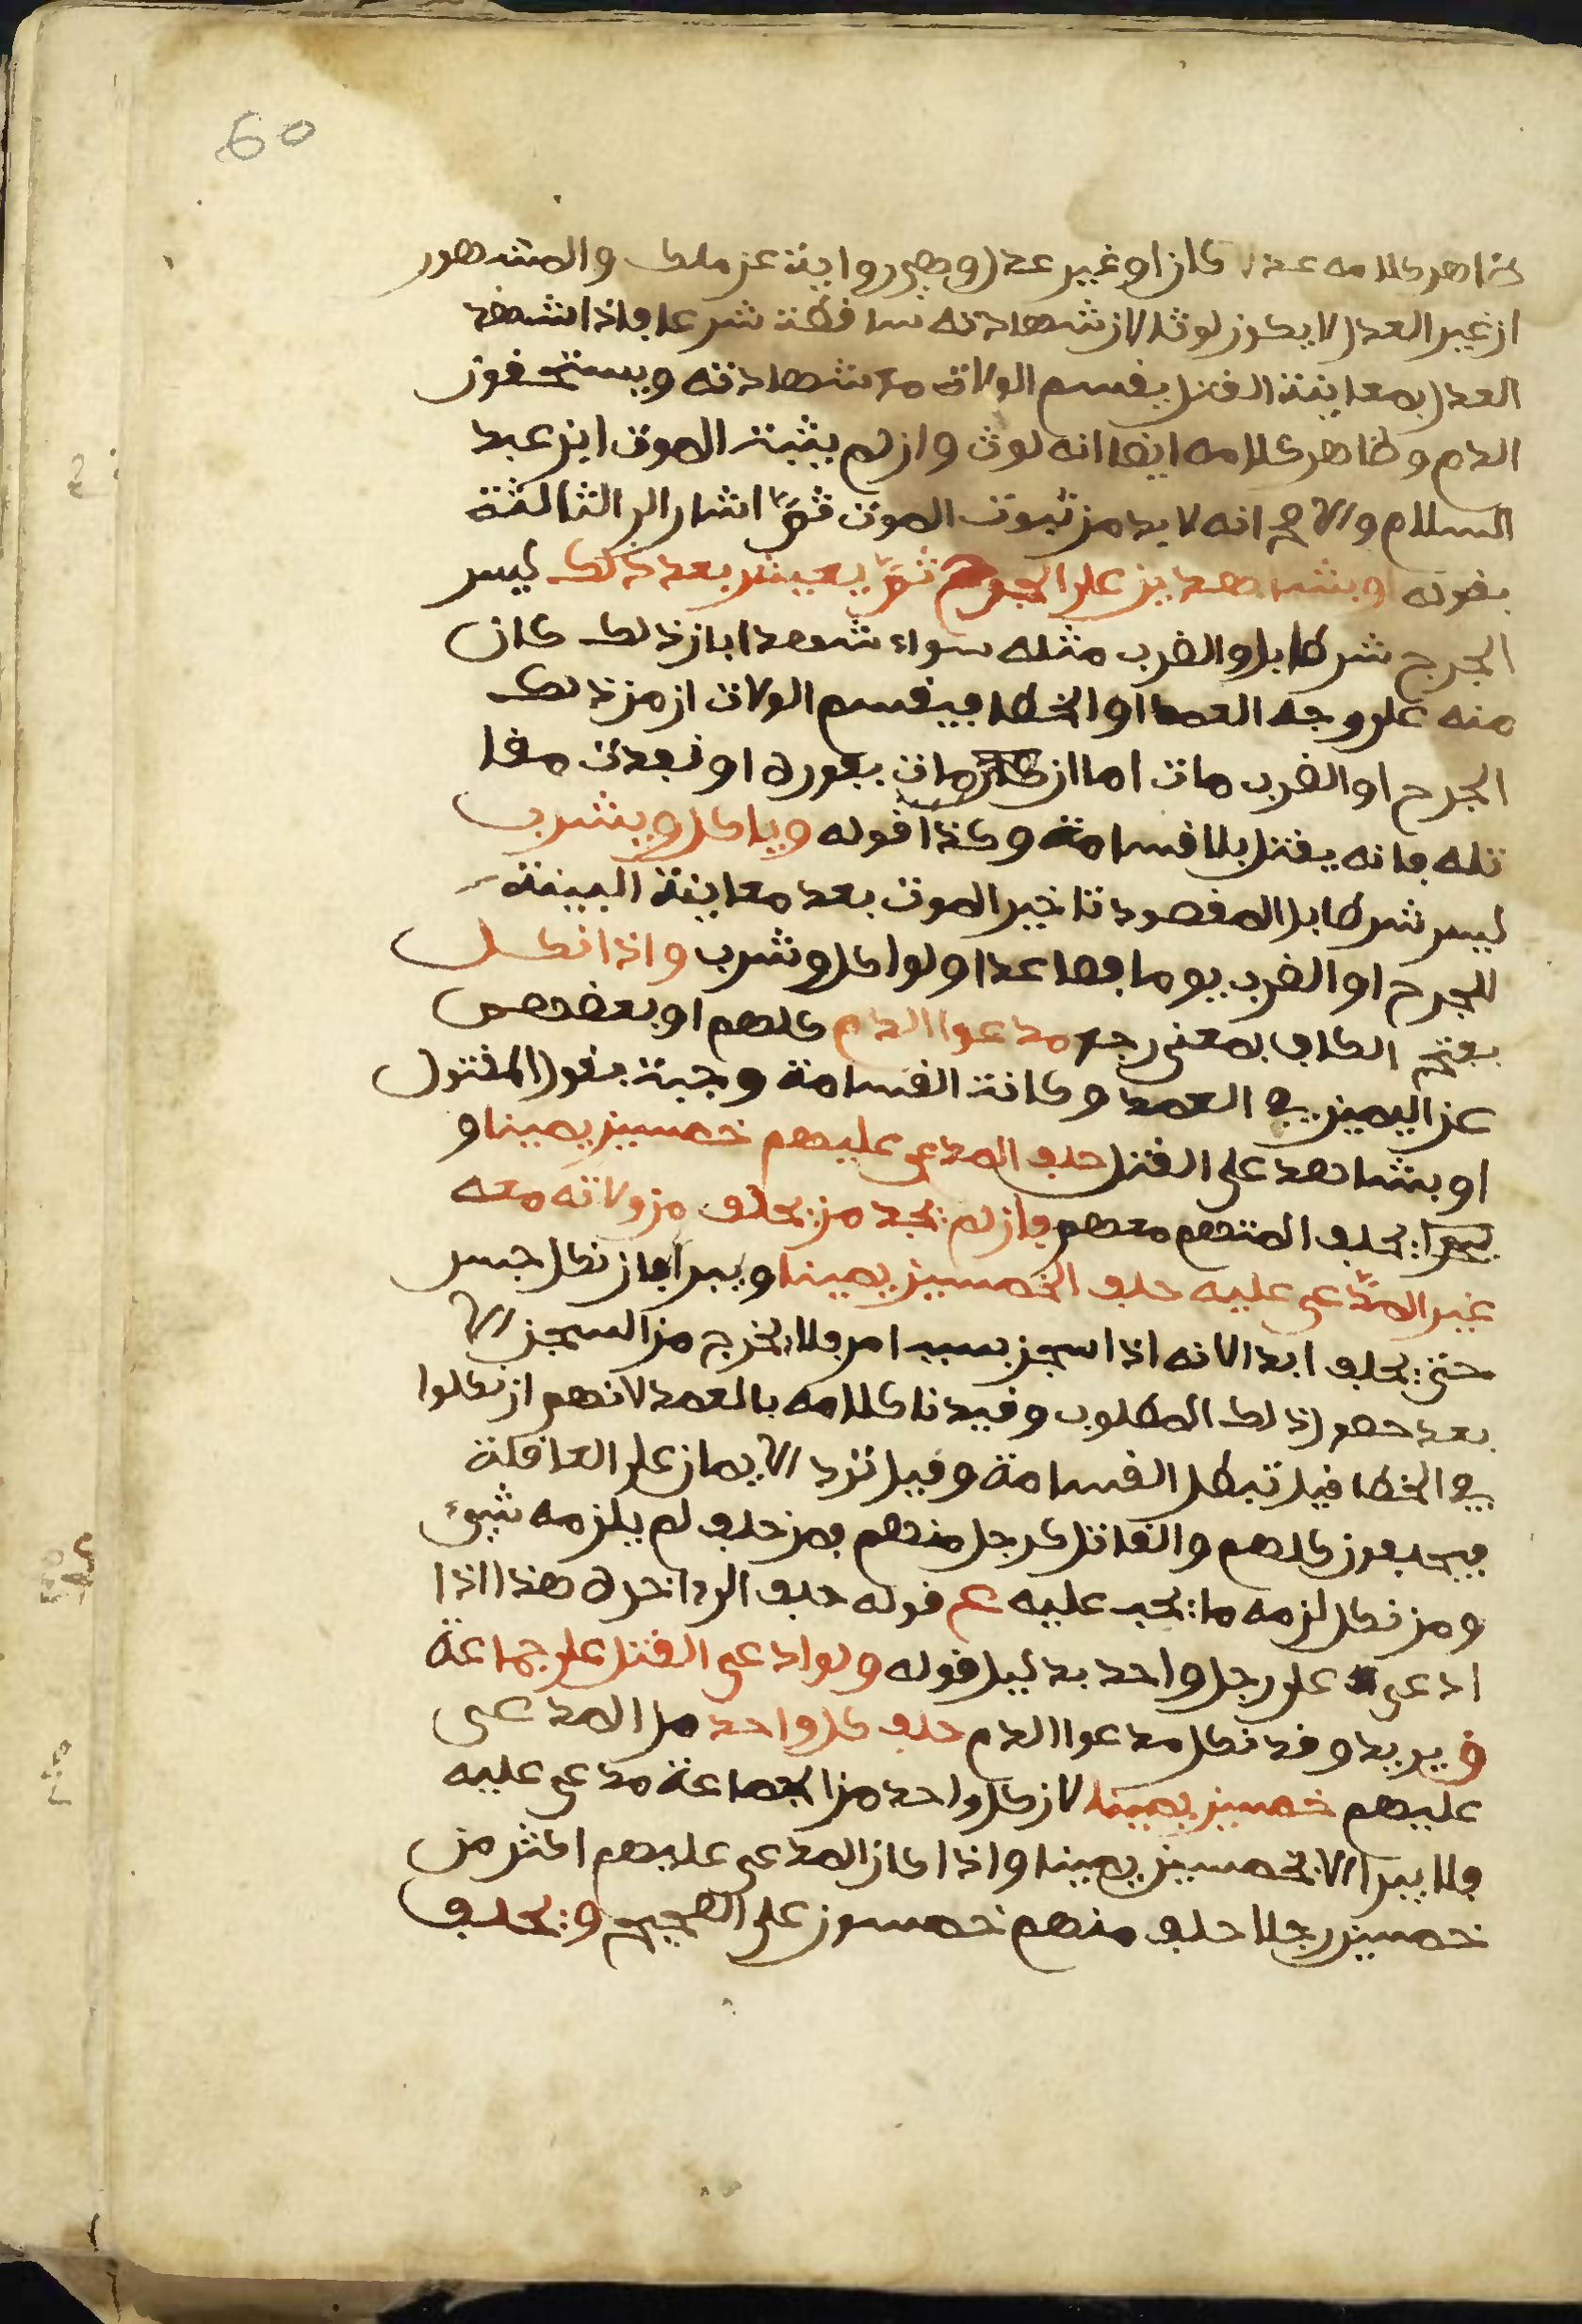 60
ظاهر كلامه عدلا كان او غير عدل وهي رواية عن ملك والمشهور
ان غير العدل لا يكون لوثا لان شهادته ساقطة شرعا فاذا شهد
العدل بمعاينة القتل يقسم الولاة مع شهادته ويستحقون
الدم وظاهر كلامه ايضا انه لوث وان لم يثبت الموت ابن عبد
السلام والاصح انه لا بد من ثبوت الموت ثم اشار الى الثالثة
بقوله او بشاهدين على الجرح ثم يعيش بعد ذلك ليس
الجرح شرطا بل والضرب مثله سواء شهدا بان ذلك كان
منه على وجه العمد او الخطا فيقسم الولاة ان من ذلك
الجرح او الضرب مات اما ان كان مات بفوره او نفدت مقا
تله فانه يقتل بلا قسامة وكذا قوله وياكل ويشرب
ليس شرطا بل المقصود تاخير الموت بعد معاينة البينة
للجرح او الضرب يوما فصاعدا ولو اكل وشرب واذا نكل
بفتح الكاف بمعنى رجع مدعوا الدم كلهم او بعضهم
عن اليمين في العمد وكانت القسامة وجبت بقول المقتول
او بشاهد على القتل حلف المدعى عليهم خمسين يمينا و
يحلف المتهم معهم فان لم يجد من يحلف من ولاته معه
غير المدعى عليه حلف الخمسين يمينا ويبرا فان نكل حبس
حتى يحلف ابدا لانه اذا سجن بسبب امر فلا يخرج من السجن الا
بعد حصول ذلك المطلوب وقيدنا كلامه بالعمد لانهم ان نكلوا
في الخطا قيل تبطل القسامة وقيل ترد الايمان على العاقلة
فيحلفون كلهم والقاتل كرجل منهم فمن حلف لم يلزمه شيء
ومن نكل لزمه ما يجب عليه ثم قوله حلف الى اخره هذا اذا
ادعى على رجل واحد بدليل قوله ولو ادعى القتل على جماعة
و يريد وقد نكل مدعوا الدم حلف كل واحد من المدعى
عليهم خمسين يمينا لان كل واحد من الجماعة مدعى عليه
فلا يبرا الا بخمسين يمينا واذا كان المدعى عليهم اكثر من
خمسين رجلا حلف منهم خمسون على الصحيح ويحلف